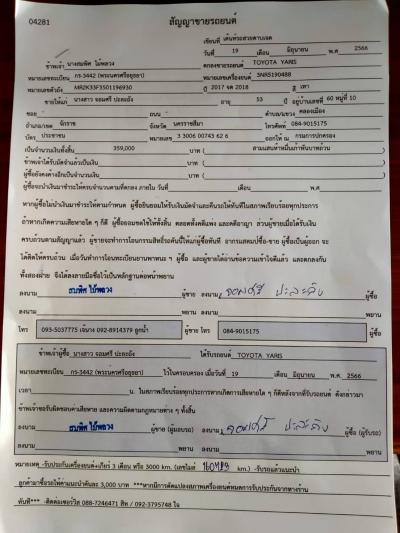 04281
สัญญาขายรถยนต์
เขียนที่ เต้นท์รถสวยดาบเจต
วันที่ 19 เดือน มิถุนายน พ.ศ. 2566
ข้าพเจ้า นางสมพิศ ไม้พลวง ตกลงขายรถยนต์ TOYOTA YARIS
หมายเลขทะเบียน กร-3442 (พระนครศรีอยุธยา) หมายเลขเครื่องยนต์ 3NR5190488
หมายเลขตัวถัง MR2K33F3501196930 ปี 2017 จด 2018 สี เทา
ขายให้แก่ นางสาว จอมศรี ปะละถัง อายุ 53 ปี อยู่บ้านเลขที่ 60 หมู่ที่ 10
ซอย ถนน ตำบล/แขวง คลองเมือง
อำเภอ/เขต จักราช จังหวัด นครราชสีมา โทรศัพท์ 084-9015175
บัตร ประชาชน หมายเลข 3 3006 00743 62 6 ออกให้ ณ กรมการปกครอง
เป็นจำนวนเงินทั้งสิ้น 359,000 บาท ( สามแสนห้าหมื่นเก้าพันบาทถ้วน )
ข้าพเจ้าได้รับมัดจำแล้วเป็นเงิน บาท ( )
ผู้ซื้อยังคงค้างอีกเป็นจำนวนเงิน บาท ( )
ผู้ซื้อจะนำเงินมาชำระให้ครบจำนวนตามที่ตกลง ภายใน วันที่ เดือน พ.ศ.
หากผู้ซื้อไม่นำเงินมาชำระให้ตามกำหนด ผู้ซื้อยินยอมให้ริบเงินมัดจำและคืนรถให้ทันทีในสภาพเรียบร้อยทุกประการ
ถ้าหากเกิดความเสียหายใด ๆ ก็ดี ผู้ซื้อยอมชดใช้ให้ทั้งสิ้น ตลอดทั้งคดีแพ่ง และคดีอาญา ส่วนผู้ขายเมื่อได้รับเงิน
ครบถ้วนตามสัญญาแล้ว ผู้ขายจะทำการโอนกรรมสิทธิ์รถคันนี้ให้แก่ผู้ซื้อทันที อากรแสตมป์ซื้อ-ขาย ผู้ซื้อเป็นผู้ออก จะ
ได้คิดให้ครบถ้วน เมื่อวันทำการโอนทะเบียนยานพาหนะ ๆ ผู้ซื้อ และผู้ขายได้อ่านข้อความเข้าใจดีแล้ว และตกลงกัน
ทั้งสองฝ่าย จึงได้ลงลายมือชื่อไว้เป็นหลักฐานต่อหน้าพยาน
ลงนาม สมพิศ ไม้พลวง ผู้ขาย ลงนาม จอมศรี ปะละถัง ผู้ซื้อ
ลงนาม พยาน ลงนาม พยาน
โทร 093-5037775 เฉนาง 092-8914379 ลูกน้ำ ผู้ขาย โทร 084-9015175 ผู้ซื้อ
ข้าพเจ้าผู้ซื้อ นางสาว จอมศรี ปะละถัง ได้รับรถยนต์ TOYOTA YARIS
หมายเลขทะเบียน กร-3442 (พระนครศรีอยุธยา) ไว้ในครอบครอง เมื่อวันที่ 19 เดือน มิถุนายน พ.ศ. 2566
เวลา น. ในสภาพเรียบร้อยทุกประการหากเกิดการเสียหายใด ๆ ก็ดีหลังจากที่รับรถยนต์ ดังกล่าวมา
ข้าพเจ้าขอรับผิดชอบค่าเสียหาย และความผิดตามกฎหมายทาง ๆ ทั้งสิ้น
ลงนาม สมพิศ ไม้พลวง ผู้ขาย (ผู้มอบรถ) ลงนาม จอมศรี ปะละถัง ผู้ซื้อ (ผู้รับรถ)
ลงนาม พยาน ลงนาม พยาน
หมายเหตุ -รับประกันเครื่องยนต์+เกียร์ 3 เดือน หรือ 3000 km. (เลขไมล์ km.) -รับรถแล้วแนะนำ
ลูกค้ามาซื้อรถให้ค่าแนะนำคันละ 3,000 บาท ***หากมีการดัดแปลงสภาพเครื่องยนต์หมดการรับประกันจากทางร้าน
ทันที*** -ติดต่อเซอร์วิส 088-7246471 สิท / 092-3795748 ใจ